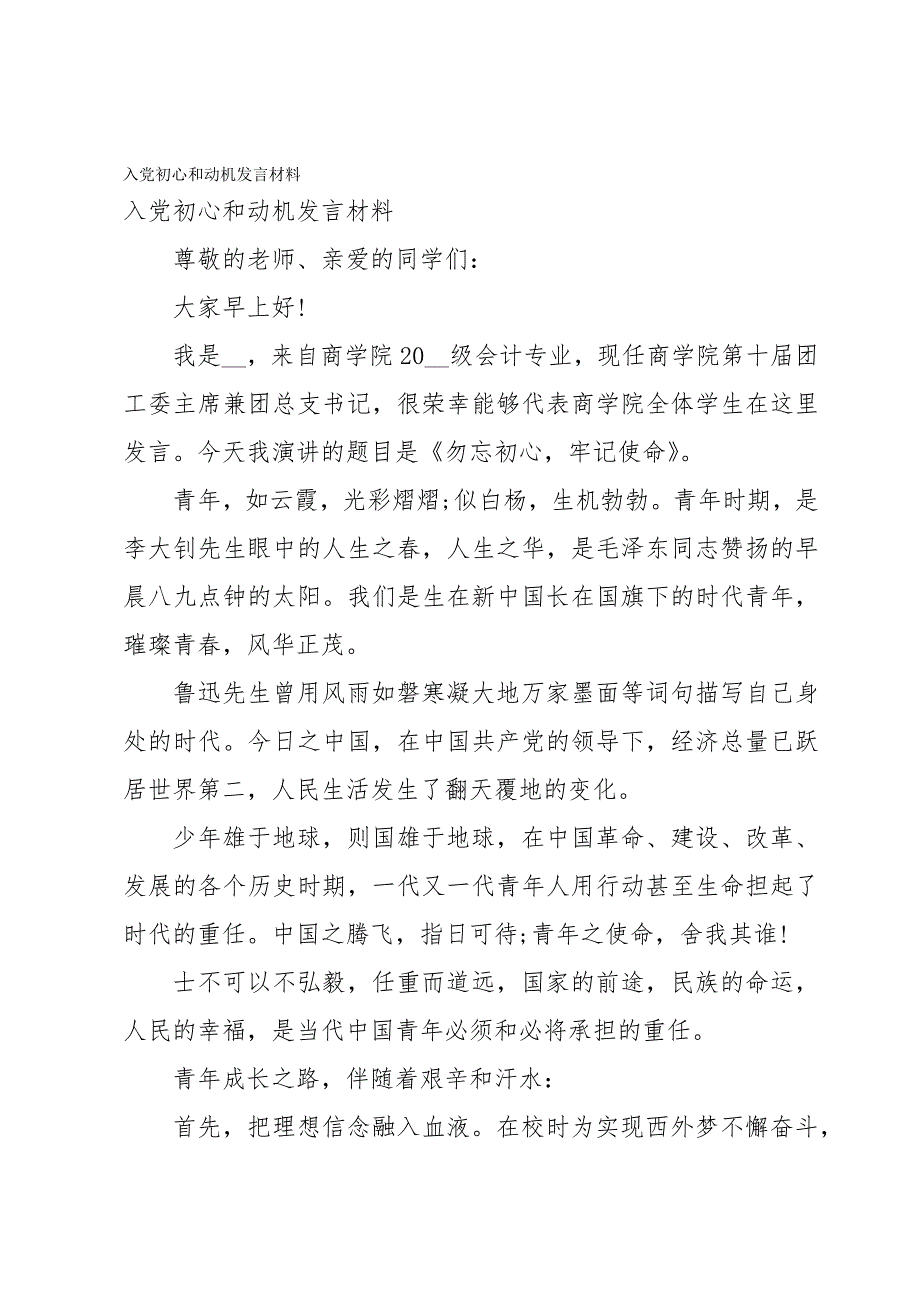 入党初心和动机发言材料
入党初心和动机发言材料
尊敬的老师、亲爱的同学们：
大家早上好!
我是__，来自商学院 20__级会计专业，现任商学院第十届团
工委主席兼团总支书记，很荣幸能够代表商学院全体学生在这里
发言。今天我演讲的题目是《勿忘初心，牢记使命》。
青年，如云霞，光彩熠熠;似白杨，生机勃勃。青年时期，是
李大钊先生眼中的人生之春，人生之华，是毛泽东同志赞扬的早
晨八九点钟的太阳。我们是生在新中国长在国旗下的时代青年，
璀璨青春，风华正茂。
鲁迅先生曾用风雨如磐寒凝大地万家墨面等词句描写自己身
处的时代。今日之中国，在中国共产党的领导下，经济总量已跃
居世界第二，人民生活发生了翻天覆地的变化。
少年雄于地球，则国雄于地球，在中国革命、建设、改革、
发展的各个历史时期，一代又一代青年人用行动甚至生命担起了
时代的重任。中国之腾飞，指日可待;青年之使命，舍我其谁!
士不可以不弘毅，任重而道远，国家的前途，民族的命运，
人民的幸福，是当代中国青年必须和必将承担的重任。
青年成长之路，伴随着艰辛和汗水：
首先，把理想信念融入血液。在校时为实现西外梦不懈奋斗，